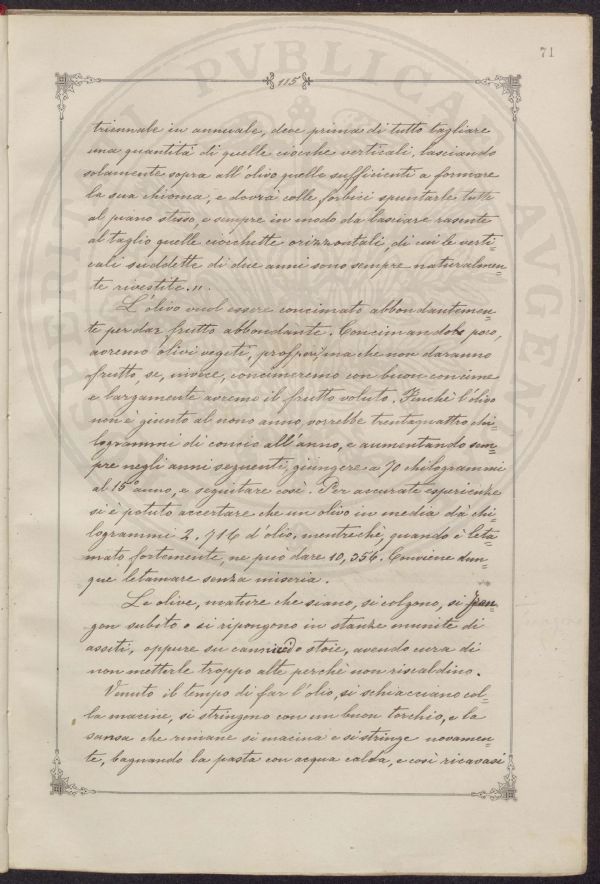 71
115
PVBLICA
AVGENT
triennale in annuale, deve prima di tutto tagliare
una quantità di quelle ciocche verticali, lasciando
solamente sopra all'olivo quelle sufficienti a formare
la sua chioma, e dovrà colle forbici spuntarle tutte
al piano stesso, e sempre in modo da lasciare rasente
al taglio quelle ciocchette orizzontali, di cui le verti=
cali suddette di due anni sono sempre naturalmen=
te rivestite.„
L'olivo vuol essere concimato abbondantemen=
te per dar frutto abbondante. Concimandolo poco,
avremo olivi vegeti, prosperi, ma che non daranno
frutto, se, invece, concimeremo con buon concime
e largamente avremo il frutto voluto. Finchè l'olivo
non è giunto al nono anno, vorrebbe trentaquattro chi=
logrammi di concio all'anno, e aumentando sem=
pre negli anni seguenti, giungere a 70 chilogrammi
al 15° anno, e seguitare così. Per accurate esperienze
si è potuto accertare che un olivo in media dà chi=
logrammi 2,716 d'olio, mentrechè, quando è leta=
mato fortemente, ne può dare 10,356. Conviene dun=
que letamare senza miseria.
Le olive, mature che siano, si colgono, si fran=
gon subito o si ripongono in stanze munite di
assiti, oppure su cannicci o stoie, avendo cura di
non metterle troppo alte perchè non riscaldino.
Venuto il tempo di far l'olio, si schiacciano col=
la macine, si stringono con un buon torchio, e la
sansa che rimane si macina e si stringe novamen=
te, bagnando la pasta con acqua calda, e così ricavasi